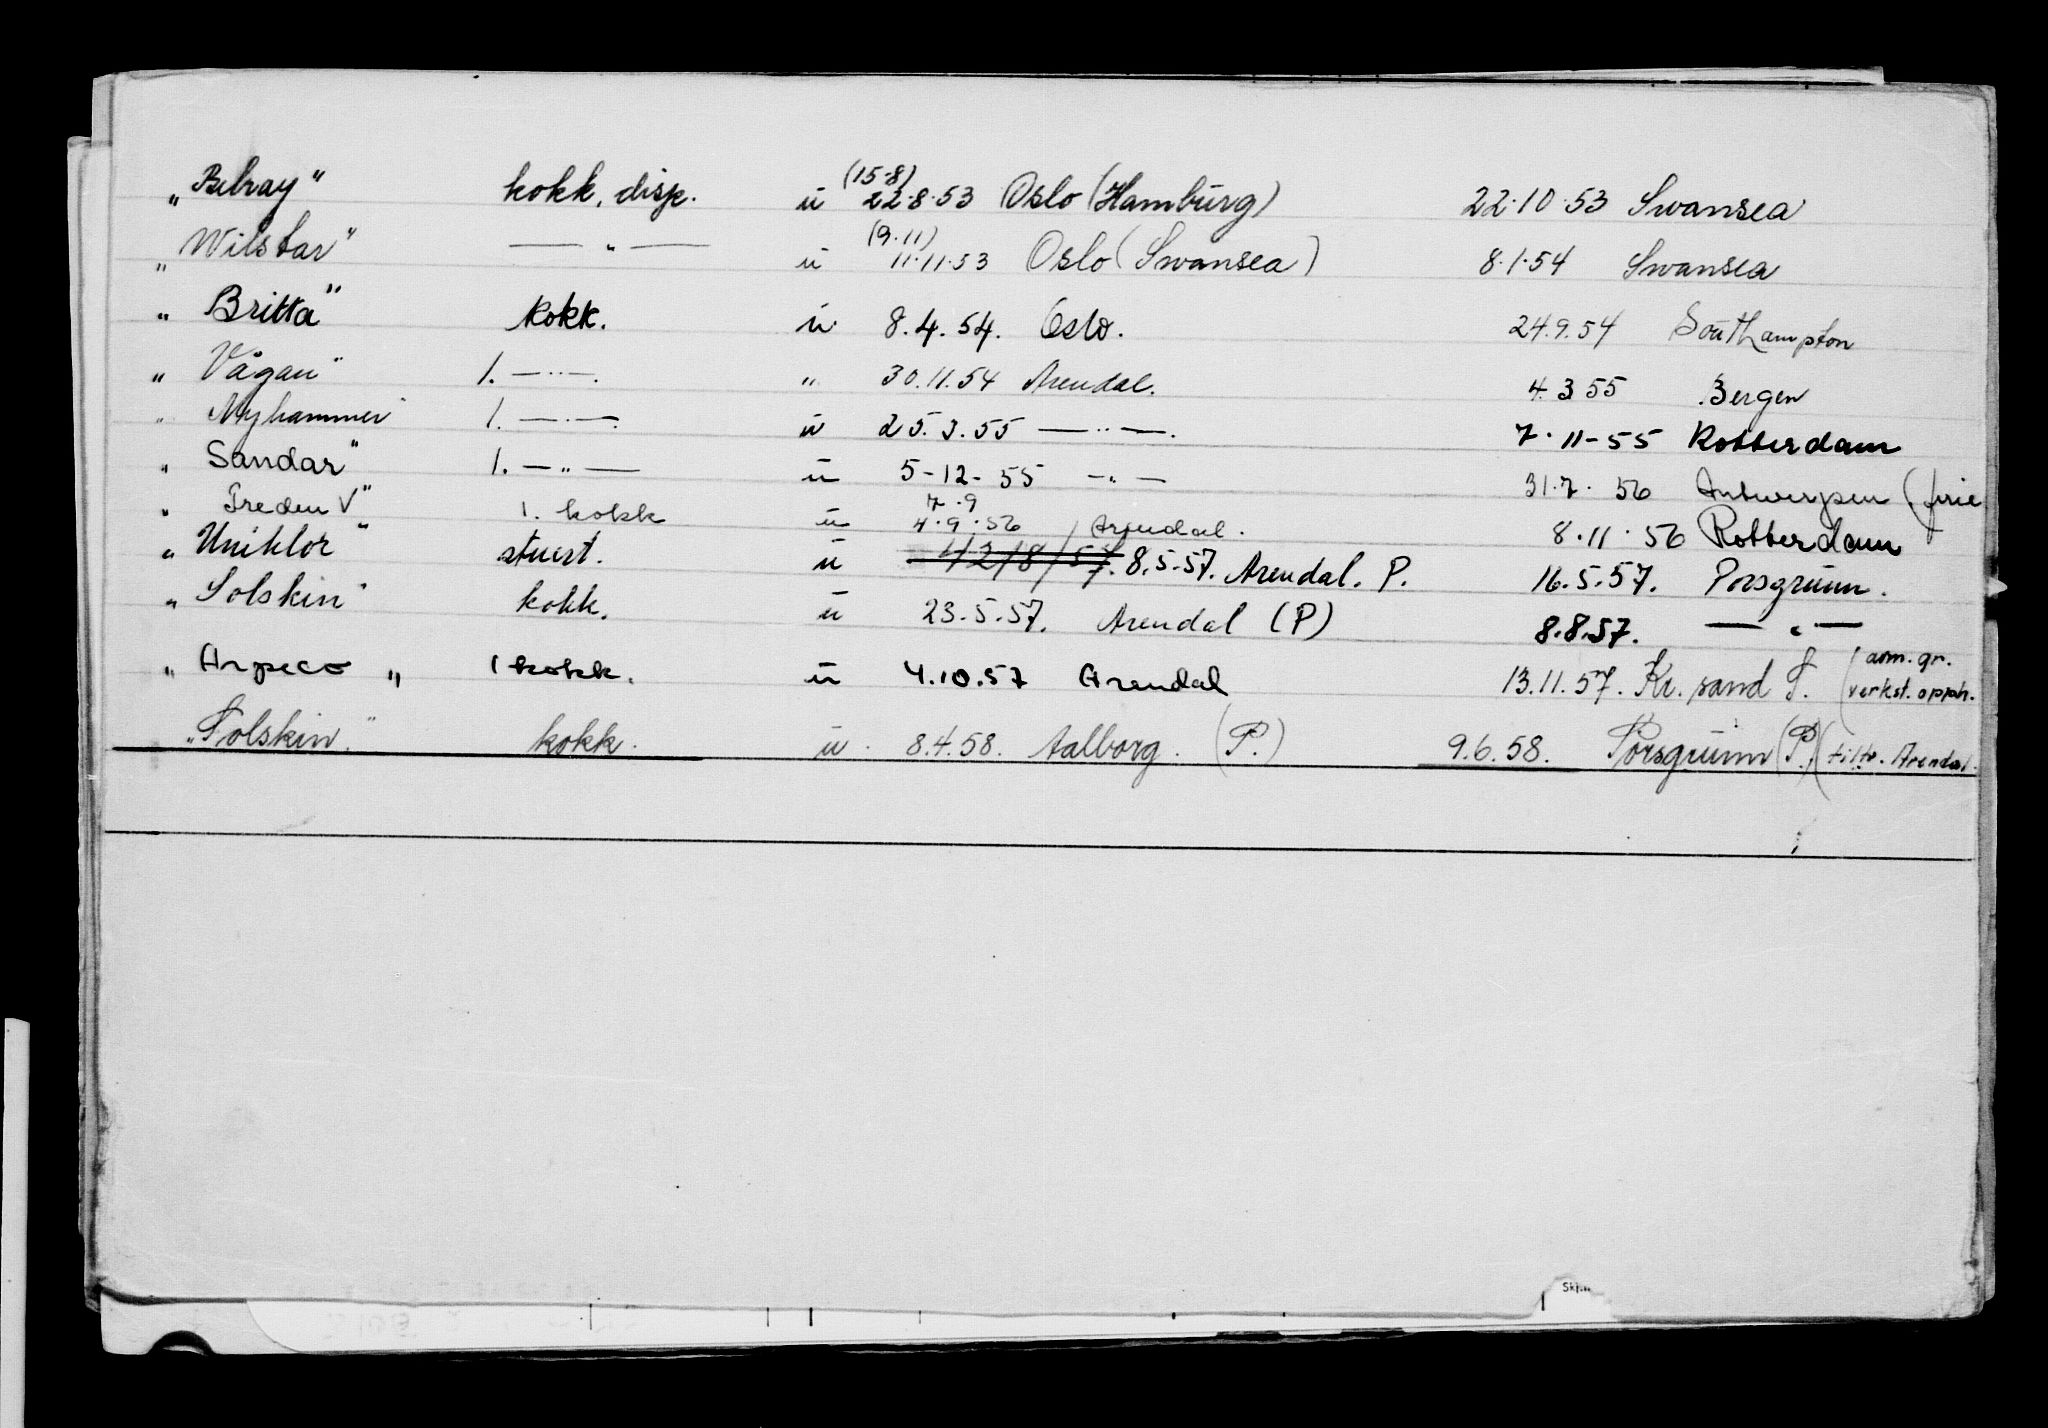 „Belray" kokk, disp. u (15-8) 22.8.53 Oslo (Hamburg) 22.10.53 Swansea
„Wilstar" — " — u (9.11) 11.11.53 Oslo (Swansea) 8.1.54 Swansea
„Britta" kokk. u 8.4.54. Oslo. 24.9.54 Southampton
„Vågan" 1. — " —. " 30.11.54 Arendal. 4.3.55 Bergen
„Nyhammer" 1. — " —. u 25.3.55 — " —. 7.11-55 Rotterdam
„Sandar" 1. — " — u 5-12-55 — " — 31.7.56 Antwerpen (ferie
„Freden V" 1. kokk u 7.9 4.9.56 / Arendal. 8.11.56 Rotterdam
„Uniklor" stuert. u 8.5.57. Arendal. P. 16.5.57. Porsgrunn.
„Solskin" kokk. u 23.5.57. Arendal (P) 8.8.57. — " —
„Arpeco„ 1 kokk. u 4.10.57 Arendal 13.11.57. Kr. sand S. (avm. gr. verkst. opph.
„Solskin." kokk. u. 8.4.58. Aalborg. (P.) 9.6.58. Porsgrunn (P.) (tiltr. Arendal.